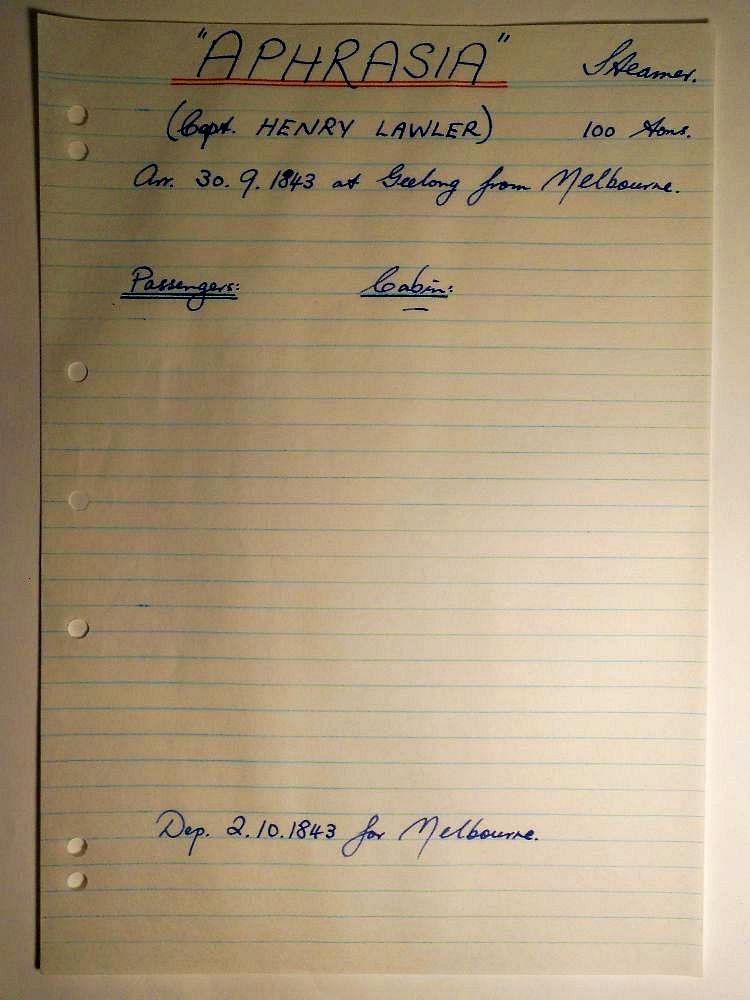 "APHRASIA" Steamer.
(Capt. HENRY LAWLER) 100 Tons.
Arr. 30.9.1843 at Geelong from Melbourne.
Passengers: Cabin:
—
Dep. 2.10.1843 for Melbourne.